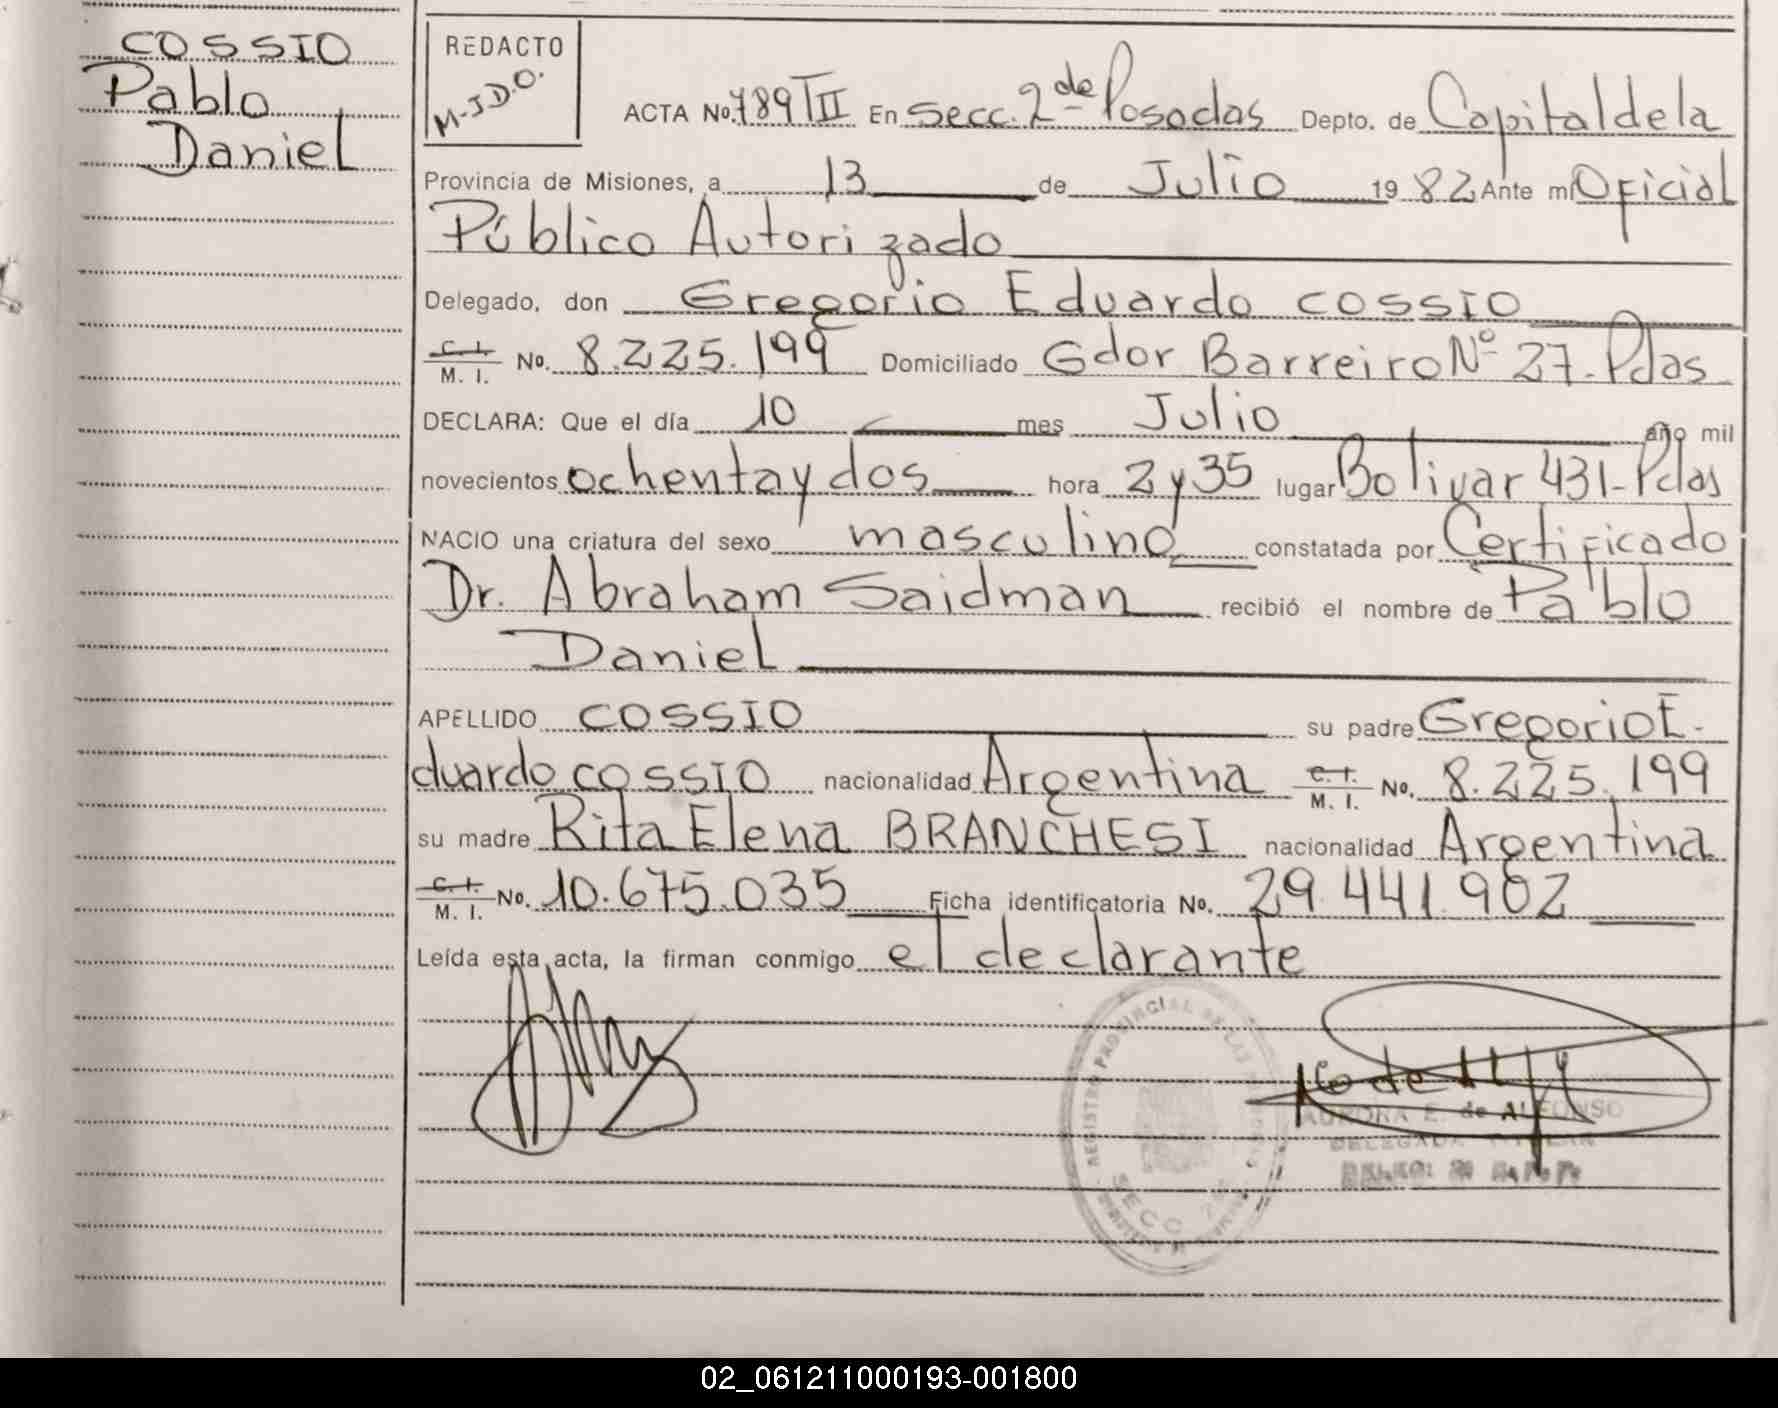 COSSIO
Pablo
Daniel
REDACTO
M.J.D.O.
ACTA No. 789 TII En Secc. 2da de Posadas Depto. de Capital de la
Provincia de Misiones, a 13 de Julio 1982 Ante mí Oficial
Público Autorizado
Delegado, don Gregorio Eduardo COSSIO
C. I. / M. I. No. 8.225.199 Domiciliado Gdor Barreiro Nº 27-Pdas
DECLARA: Que el día 10 mes Julio año mil
novecientos ochenta y dos hora 2 y 35 lugar Bolivar 431-Pdas
NACIO una criatura del sexo masculino constatada por Certificado
Dr. Abraham Saidman recibió el nombre de Pablo
Daniel
APELLIDO COSSIO su padre Gregorio E-
duardo COSSIO nacionalidad Argentina C. I. / M. I. No. 8.225.199
su madre Rita Elena BRANCHESI nacionalidad Argentina
C. I. / M. I. No. 10.675.035 Ficha identificatoria No. 29.441.902
Leída esta acta, la firman conmigo el declarante
REGISTRO PROVINCIAL DE LAS
SECC 2
AURORA E. de ALFONSO
DELEGADA TITULAR
02_061211000193-001800